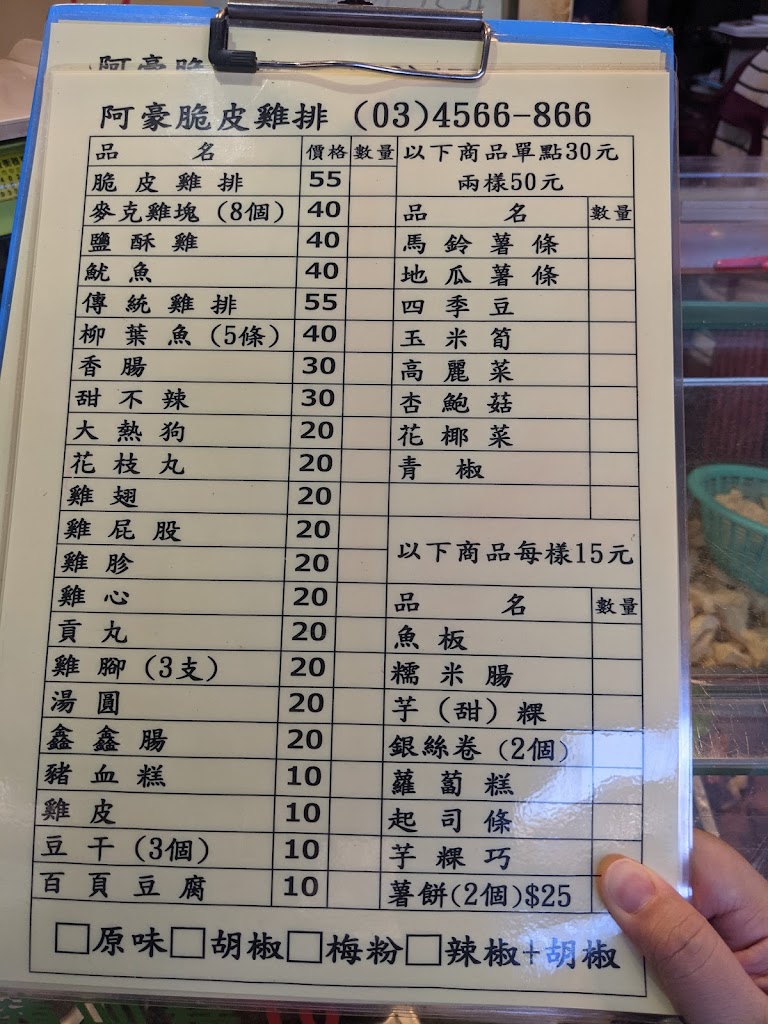 阿豪脆
阿豪脆皮雞排 (03)4566-866
品 名 價格 數量
脆皮雞排 55
麥克雞塊(8個) 40
鹽酥雞 40
魷魚 40
傳統雞排 55
柳葉魚(5條) 40
香腸 30
甜不辣 30
大熱狗 20
花枝丸 20
雞翅 20
雞屁股 20
雞胗 20
雞心 20
貢丸 20
雞腳(3支) 20
湯圓 20
鑫鑫腸 20
豬血糕 10
雞皮 10
豆干(3個) 10
百頁豆腐 10
以下商品單點30元
兩樣50元
品 名 數量
馬鈴薯條
地瓜薯條
四季豆
玉米筍
高麗菜
杏鮑菇
花椰菜
青椒
以下商品每樣15元
品 名 數量
魚板
糯米腸
芋(甜)粿
銀絲卷(2個)
蘿蔔糕
起司條
芋粿巧
薯餅(2個)$25
□原味□胡椒□梅粉□辣椒+胡椒